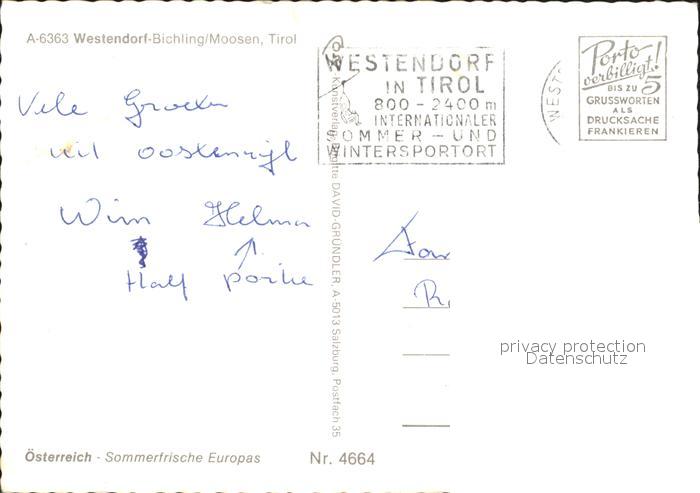 A-6363 Westendorf-Bichling/Moosen, Tirol
WESTENDORF
IN TIROL
800 - 2400 m
INTERNATIONALER
SOMMER - UND
WINTERSPORTORT
WEST
Porto
verbilligt!
BIS ZU 5
GRUSSWORTEN
ALS
DRUCKSACHE
FRANKIEREN
Vele Groeten
uit oostenrijk
Wim Helma
Half portie
Kunstverlag Brigitte DAVID-GRÜNDLER, A-5013 Salzburg, Postfach 35
Aan
privacy protection
Datenschutz
Österreich - Sommerfrische Europas
Nr. 4664